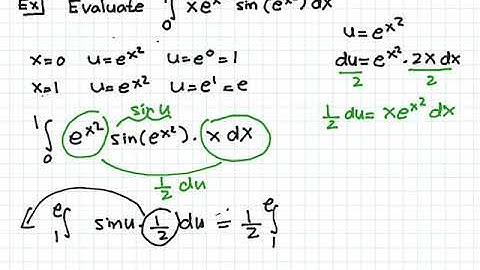 Ex] Evaluate ∫₀ xe^x² sin(e^x²)dx
u = e^x²
x=0 u=e^x² u=e⁰=1
du = e^x² · 2x dx
2 2
x=1 u=e^x² u=e¹=e
sin u
1/2 du = xe^x² dx
∫₀¹ e^x² sin(e^x²) · x dx
1/2 du
∫₁ᵉ sinu · 1/2 du = 1/2 ∫₁ᵉ